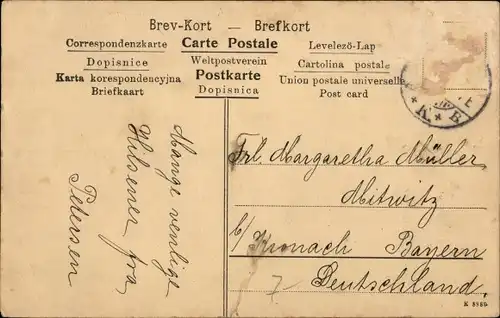 Brev-Kort — Brefkort
Correspondenzkarte Carte Postale Levelezö-Lap
Dopisnice Weltpostverein Cartolina postale
Karta korespondencyjna Postkarte Union postale universelle
Briefkaart Dopisnica Post card
K * B
Mange venlige
Hilsener fra
Petersen
Frl. Margaretha Müller
Mitwitz
b/ Kronach Bayern
7 Deutschland.